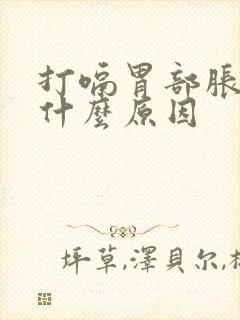 打嗝胃部脹
什麼原因
坪草,澤貝尔,